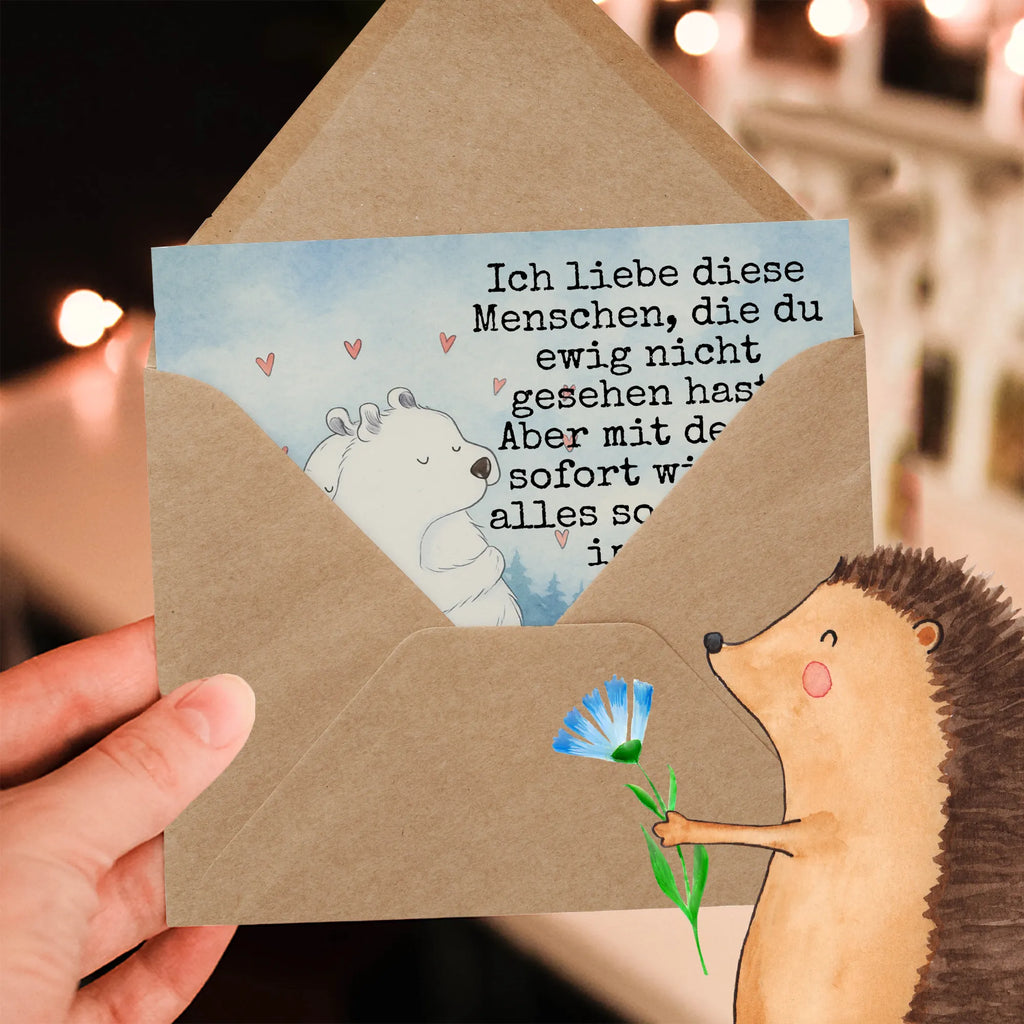 Ich liebe diese
Menschen, die du
ewig nicht
gesehen hast
Aber mit
sofort
alles